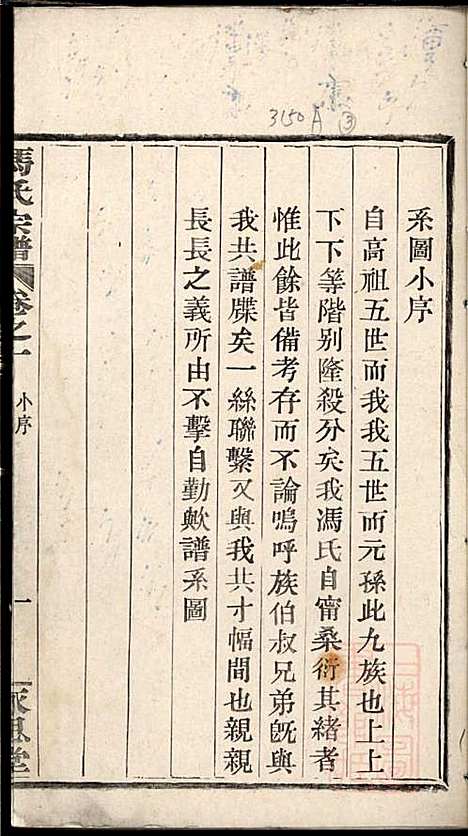 3150 A ③
系圖小序
自高祖五世而我我五世而元孫此九族也上上
下下等階别隆殺分矣我馮氏自甯桑衍其緒者
惟此餘皆備考存而不論嗚呼族伯叔兄弟旣與
我共譜牒矣一絲聯繫又與我共寸幅間也親親
長長之義所由不擊自勤歟譜系圖
馮氏宗譜
卷之一
小序
一